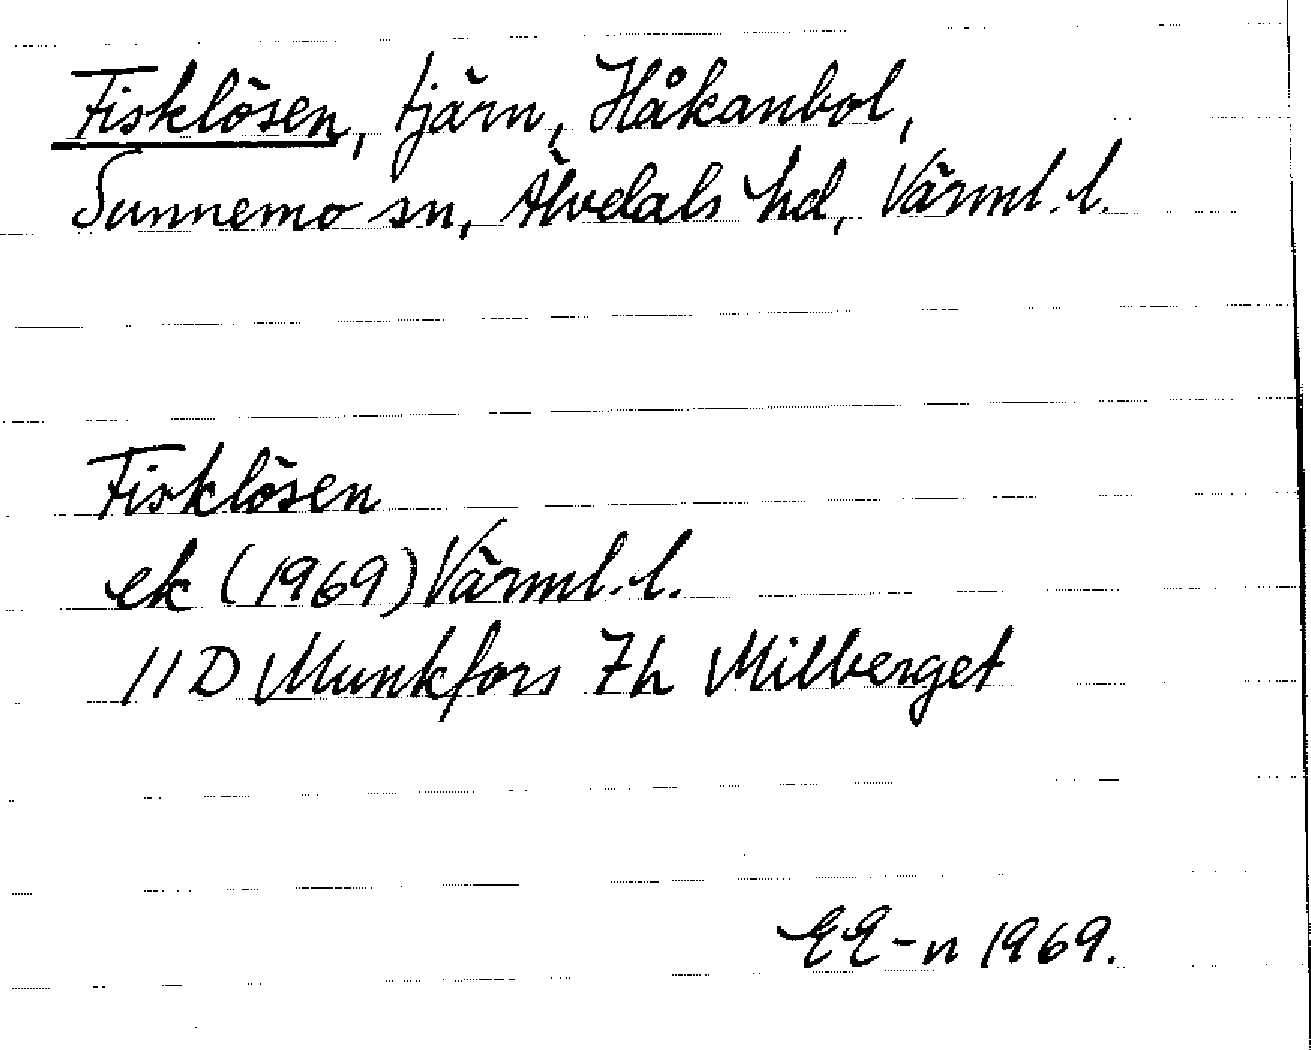 Fisklösen, tjärn, Håkanbol,
Sunnemo sn, Älvdals hd, Värml. l.
Fisklösen
ek (1969) Värml. l.
11 D Munkfors 7h Milberget
EE-n 1969.